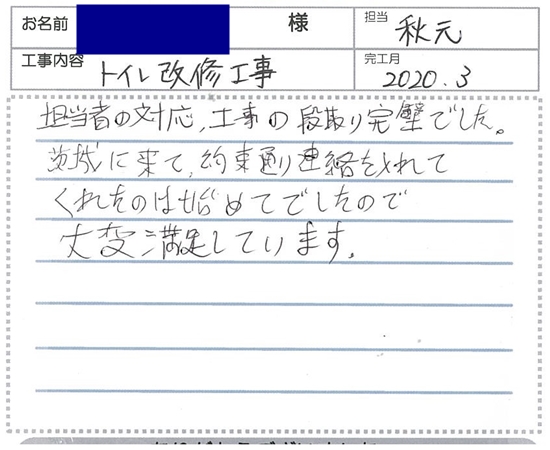 お名前 様 担当 秋元
工事内容 トイレ改修工事 完工月 2020.3
担当者の対応,工事の段取り完璧でした。
茨城に来て,約束通り連絡をくれて
くれたのは始めてでしたので
大変満足しています。